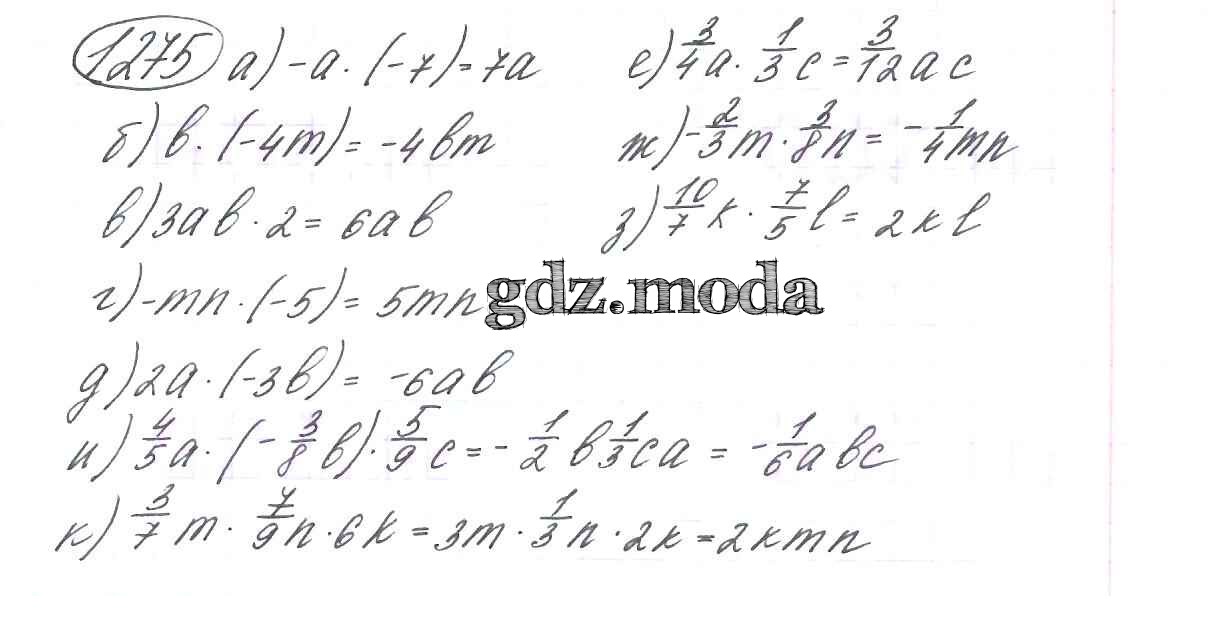 1275 а) -a · (-7) = 7a
б) b · (-4m) = -4bm
в) 3ab · 2 = 6ab
г) -mn · (-5) = 5mn
д) 2a · (-3b) = -6ab
е) 3/4 a · 1/3 c = 3/12 a c
ж) -2/3 m · 3/8 n = -1/4 mn
з) 10/7 k · 7/5 l = 2 k l
gdz.moda
и) 4/5 a · (-3/8 b) · 5/9 c = -1/2 b 1/3 c a = -1/6 a b c
к) 3/7 m · 7/9 n · 6k = 3m · 1/3 n · 2k = 2kmn